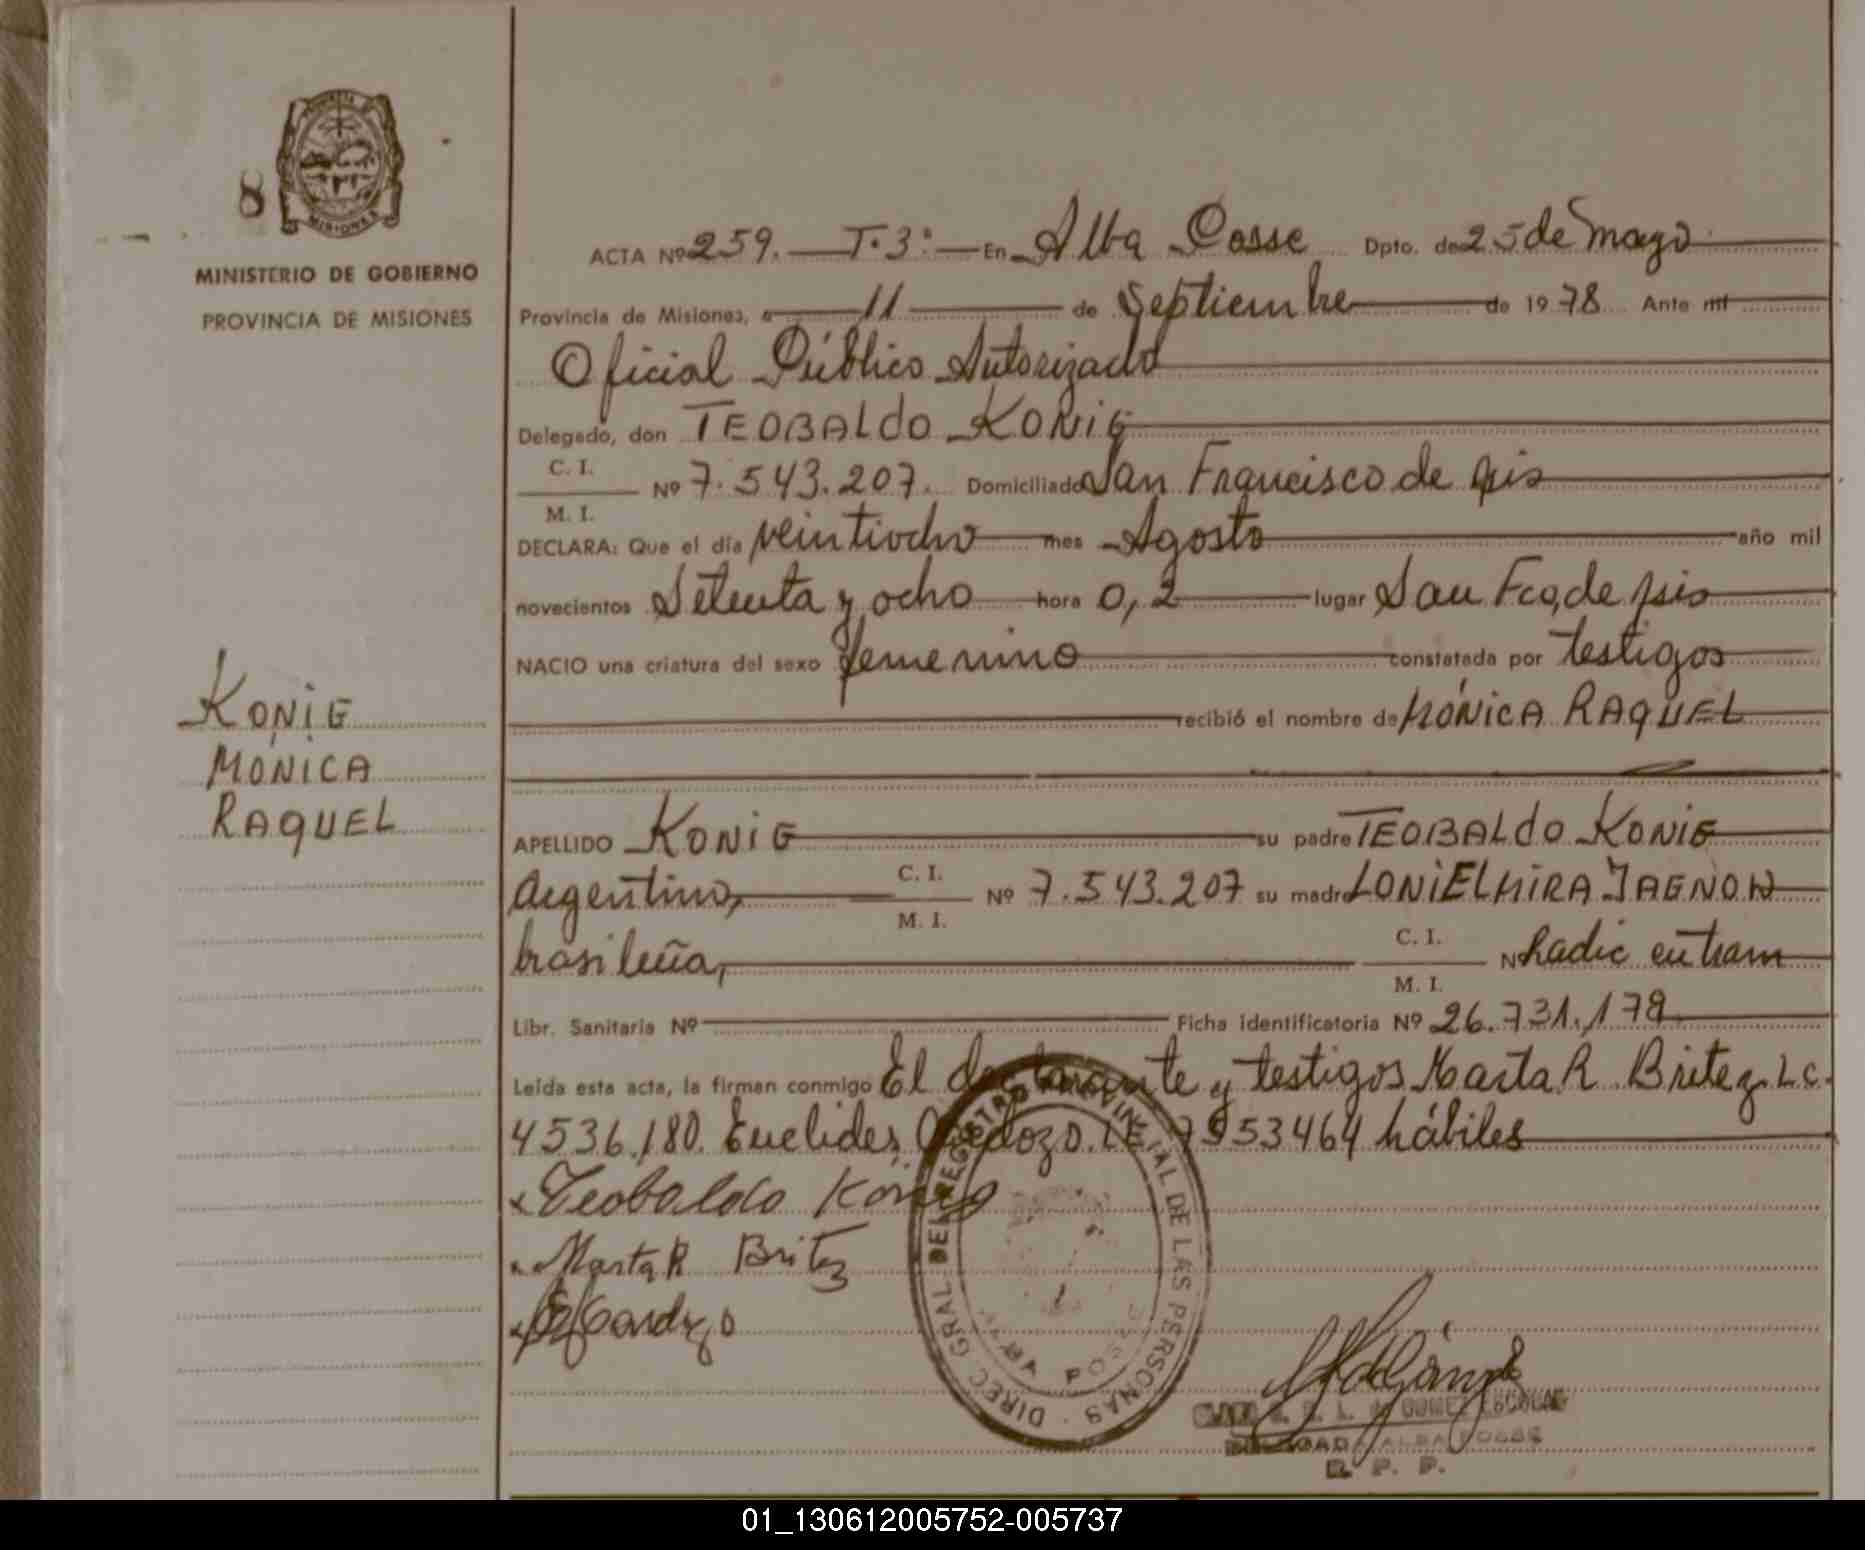 8
MISIONES
MINISTERIO DE GOBIERNO
PROVINCIA DE MISIONES
ACTA Nº 259. T. 3º En Alba Posse Dpto. de 25 de Mayo
Provincia de Misiones, a 11 de Septiembre de 1978 Ante mí
Oficial Público Autorizado
Delegado, don TEOBALDO KONIG
C. I.
Nº 7.543.207. Domiciliado San Francisco de Asis
M. I.
DECLARA: Que el día veintiocho mes Agosto año mil
novecientos Setenta y ocho hora 0,2 lugar San Fco, de Asis
NACIO una criatura del sexo femenino constatada por testigos
recibió el nombre de MÓNICA RAQUEL
KONIG
MÓNICA
RAQUEL
APELLIDO KONIG su padre TEOBALDO KONIG
Argentino, C. I. Nº 7.543.207 su madre LONI ELMIRA JAGNOW
M. I.
brasileña, C. I. Nº Radic en tram
M. I.
Libr. Sanitaria Nº Ficha identificatoria Nº 26.731.179
Leída esta acta, la firman conmigo El declarante y testigos Marta R. Britez. L.C.
4536.180. Euclides Cardozo. L.E. 7553464 hábiles
x Teobaldo König
x Marta R Britez
x Cardozo
DIREC. GRAL. DEL REGISTRO PROVINCIAL DE LAS PERSONAS
ALBA POSSE
GOMEZ ESCOLAR
DELEGADA ALBA POSSE
R. P. P.
01_130612005752-005737